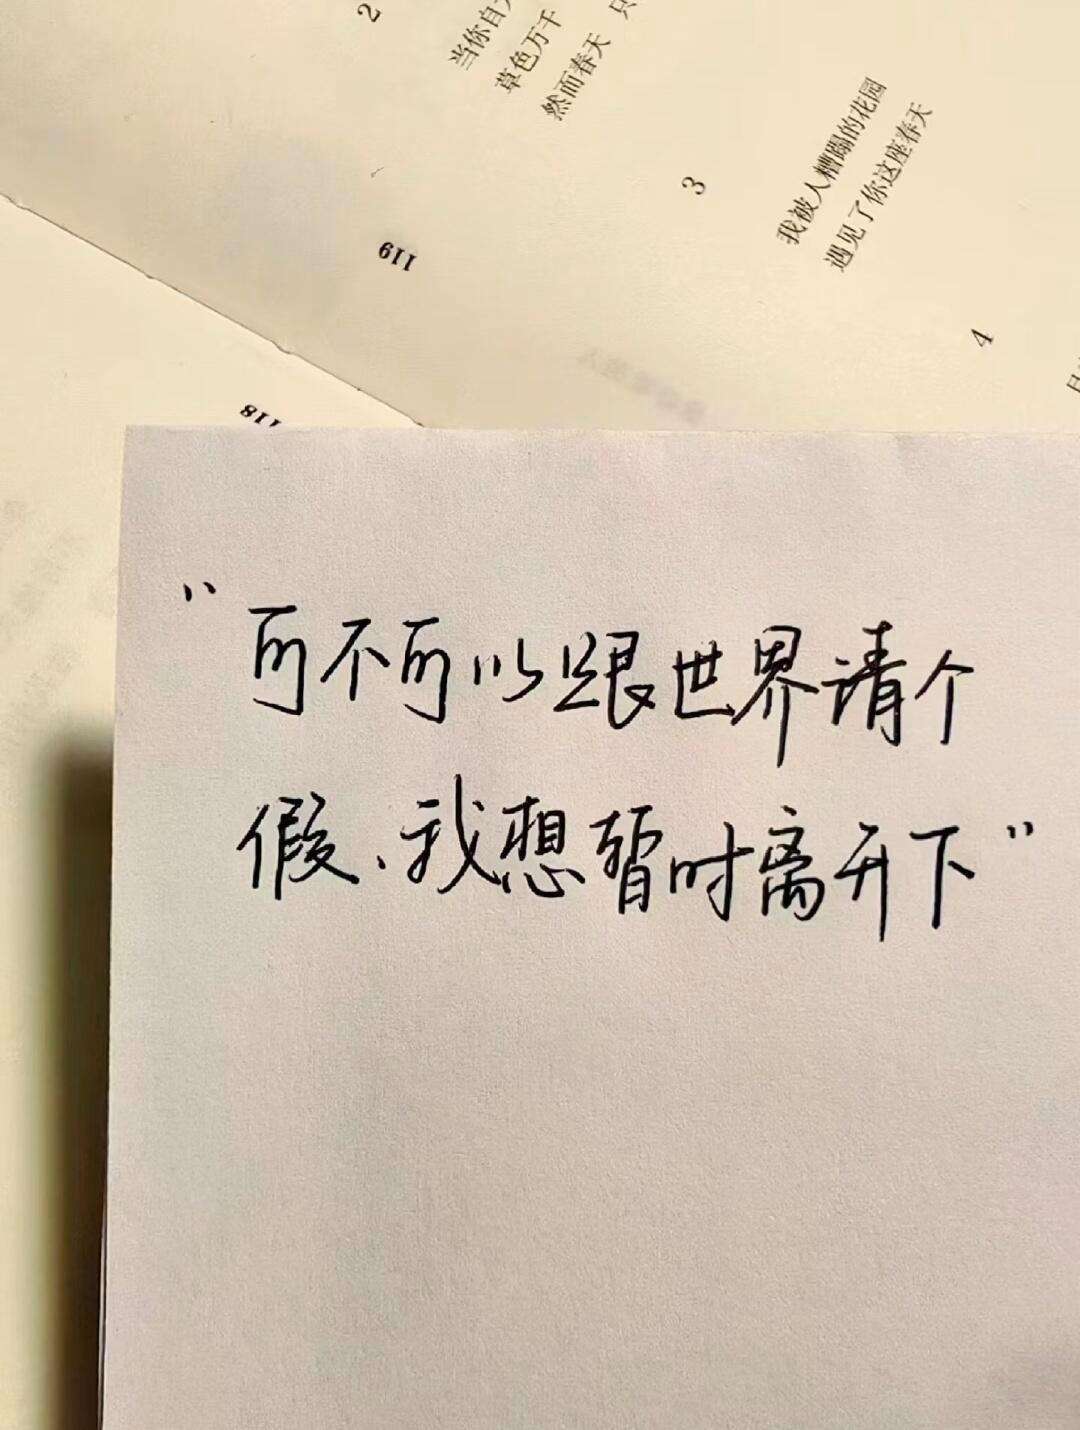 2
当你自
草色万千
然而春天 只
3
我被人糟蹋的花园
遇见了你这座春天
4
119
118
"可不可以跟世界请个
假、我想暂时离开下"